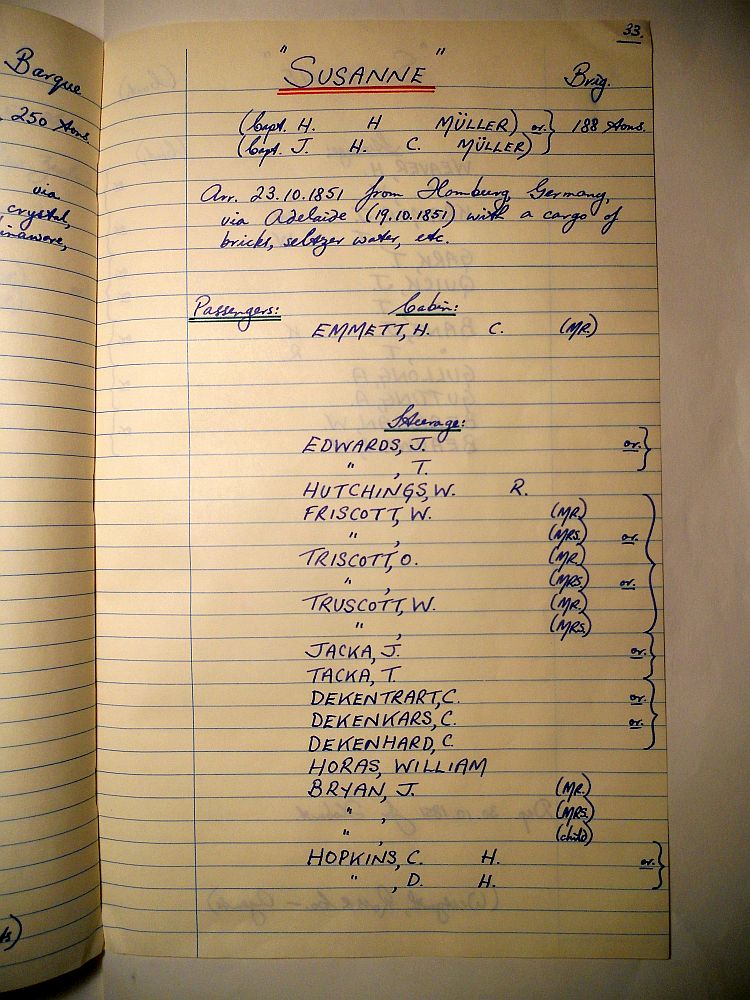 33.
Barque
"SUSANNE" Brig.
250 tons.
(Capt. H. H MÜLLER) or. 188 tons.
(Capt. J. H. C. MÜLLER)
via
crystal,
Arr. 23.10.1851 from Hamburg, Germany,
via Adelaide (19.10.1851) with a cargo of
bricks, seltzer water, etc.
Passengers: Cabin:
EMMETT, H. C. (MR.)
Steerage:
EDWARDS, J. or.
" , T.
HUTCHINGS, W. R.
FRISCOTT, W. (MR.)
" , (MRS.) or.
TRISCOTT, O. (MR.)
" , (MRS.) or.
TRUSCOTT, W. (MR.)
" , (MRS.)
JACKA, J. or.
TACKA, T.
DEKENTRART, C. or.
DEKENKARS, C. or.
DEKENHARD, C.
HORAS, WILLIAM
BRYAN, J. (MR.)
" , (MRS.)
" , (child)
HOPKINS, C. H. or.
" , D. H.